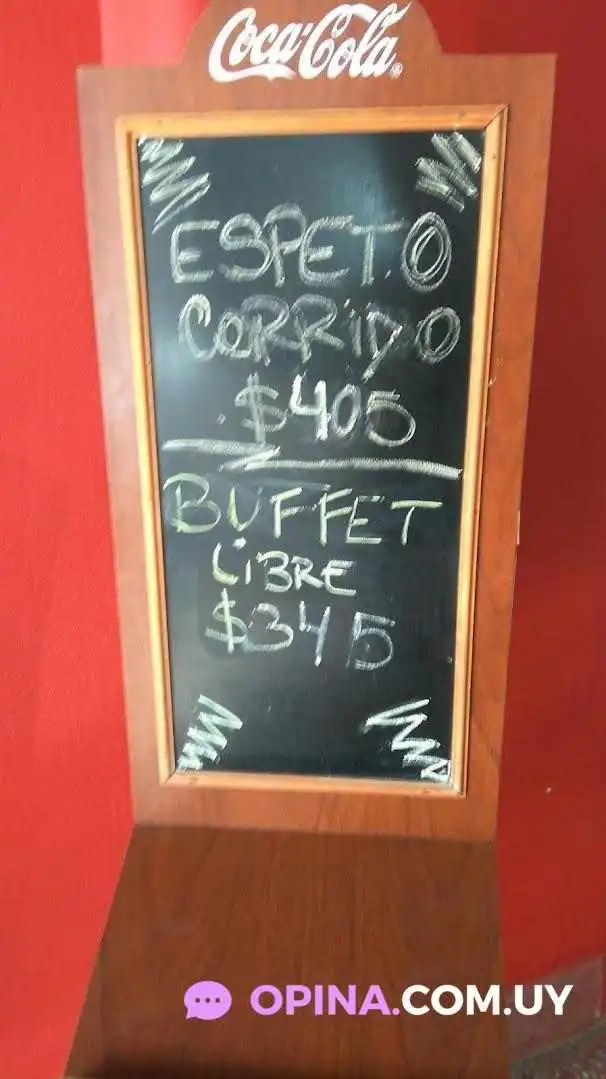 Coca-Cola®
ESPETO
CORRIDO
$405
BUFFET
LIBRE
$345
OPINA.COM.UY